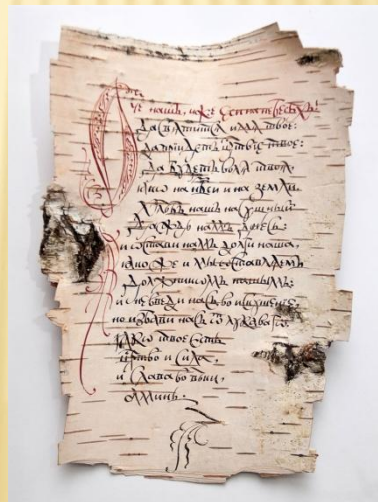 Ѻтче нашъ, иже еси на небесѣхъ!
Да святится имя твое:
да приидетъ црствіе твое:
да будетъ воля твоя,
яко на нбси и на земли.
Хлѣбъ нашъ насущный
даждь намъ днесь:
и остави намъ долги наша,
якоже и мы оставляемъ
должникомъ нашымъ:
и не введи насъ во искушеніе,
но избави насъ ѿ лукаваго
яко твое есть
црство и сила,
и слава во вѣки,
аминь.